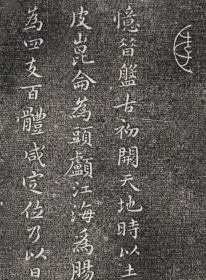 憶昔盤古初開天地時以土
皮崑侖為頭顱江海為腸
為四支百體咸定位乃以日